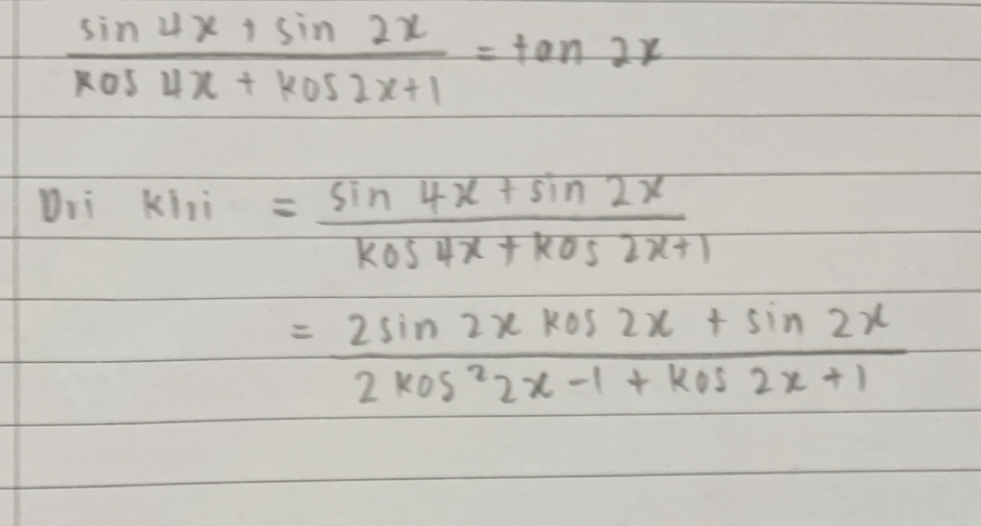 sin 4x + sin 2x
= tan 2x
kos 4x + kos 2x+1
Dri kiri = sin 4x + sin 2x
kos 4x + kos 2x+1
= 2 sin 2x kos 2x + sin 2x
2 kos² 2x -1 + kos 2x +1